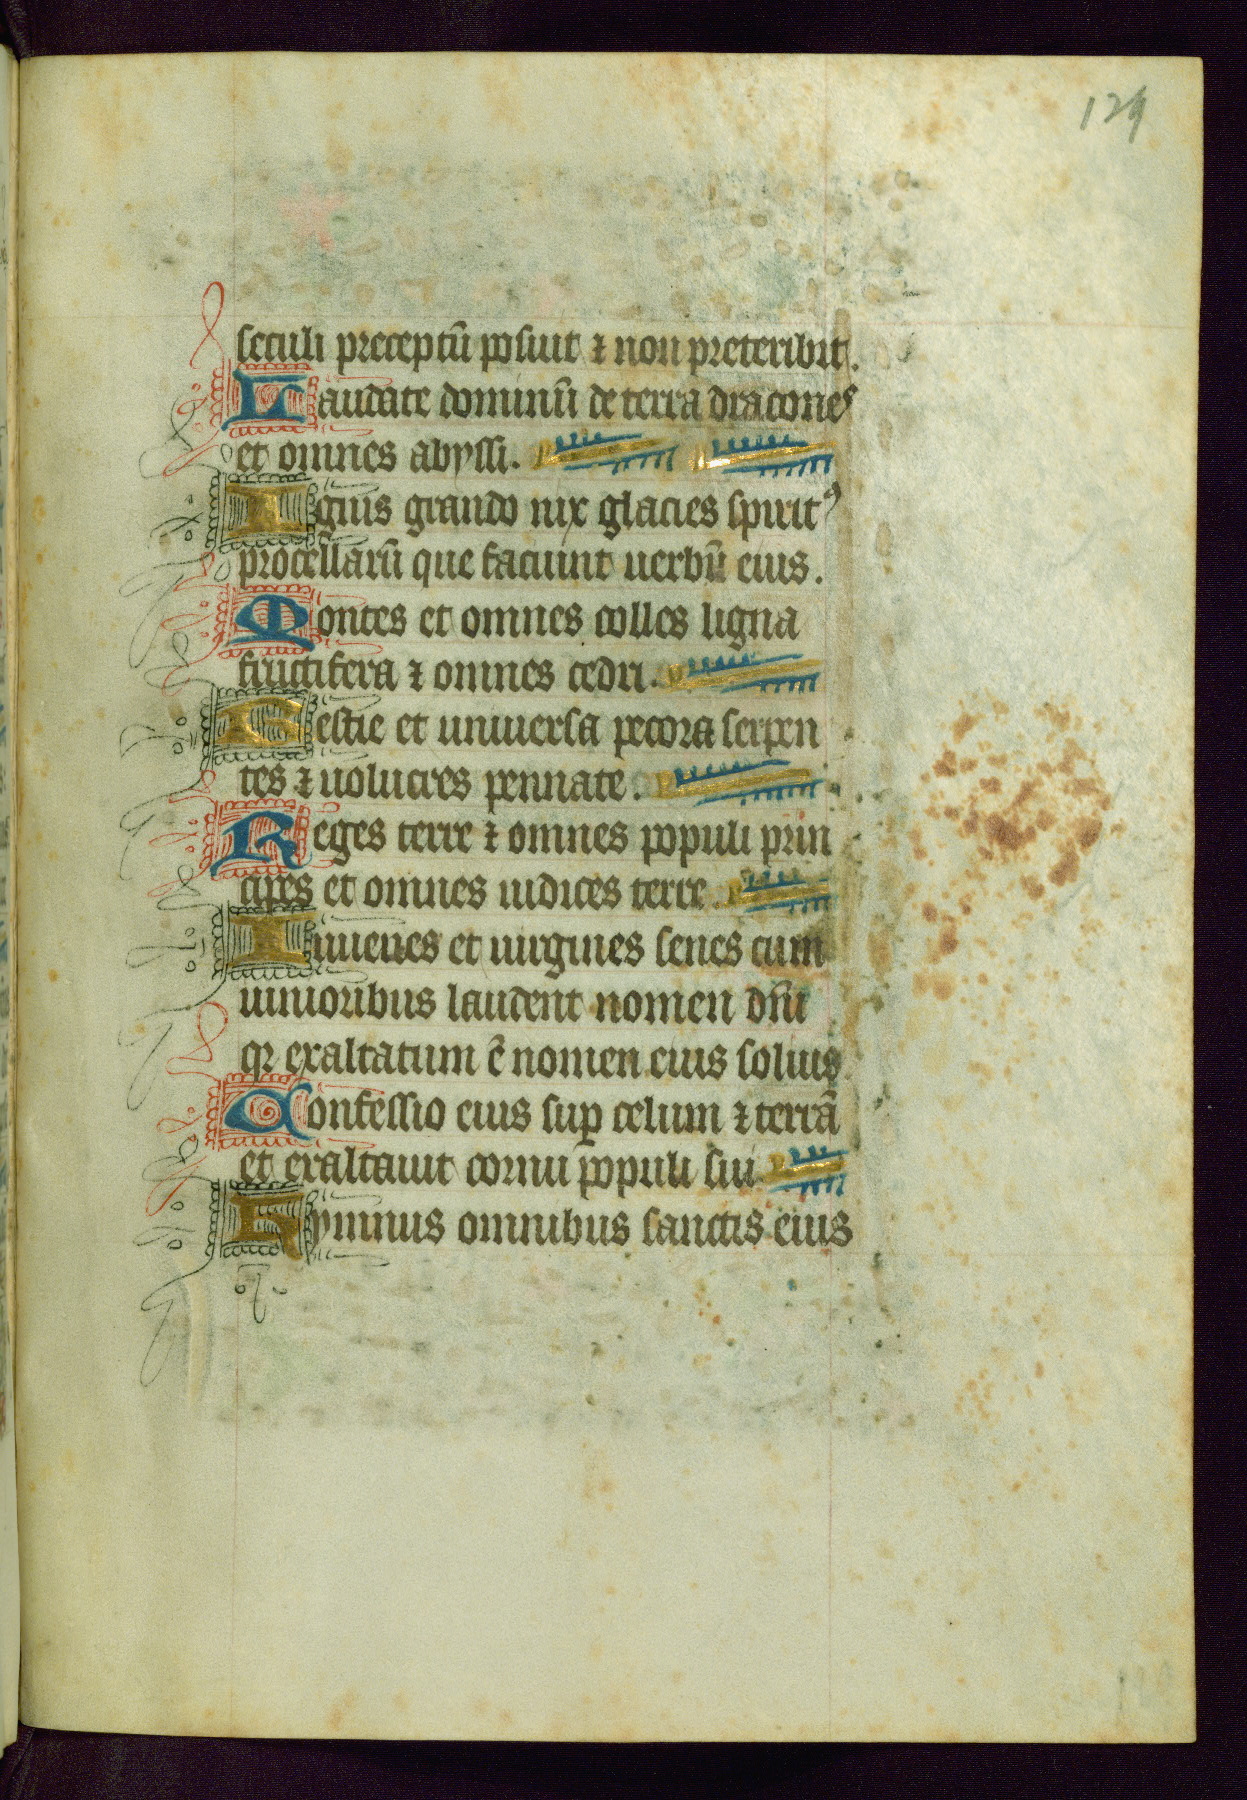 129
seculi preceptū posuit ⁊ non preteribit.
Laudate dominū de terra dracones
et omnes abyssi.
Ignis grando nix glacies spiritꝰ
procellarū que faciunt uerbū eius.
Montes et omnes colles ligna
fructifera ⁊ omnes cedri.
Bestie et uniuersa pecora serpen
tes ⁊ uolucres pennate.
Reges terre ⁊ omnes populi prin
cipes et omnes iudices terre.
Iuuenes et uirgines senes cum
iunioribus laudent nomen dn̄i
qꝛ exaltatum ē nomen eius solius
Confessio eius suꝑ celum ⁊ terrā
et exaltauit cornu populi sui
Hymnus omnibus sanctis eius